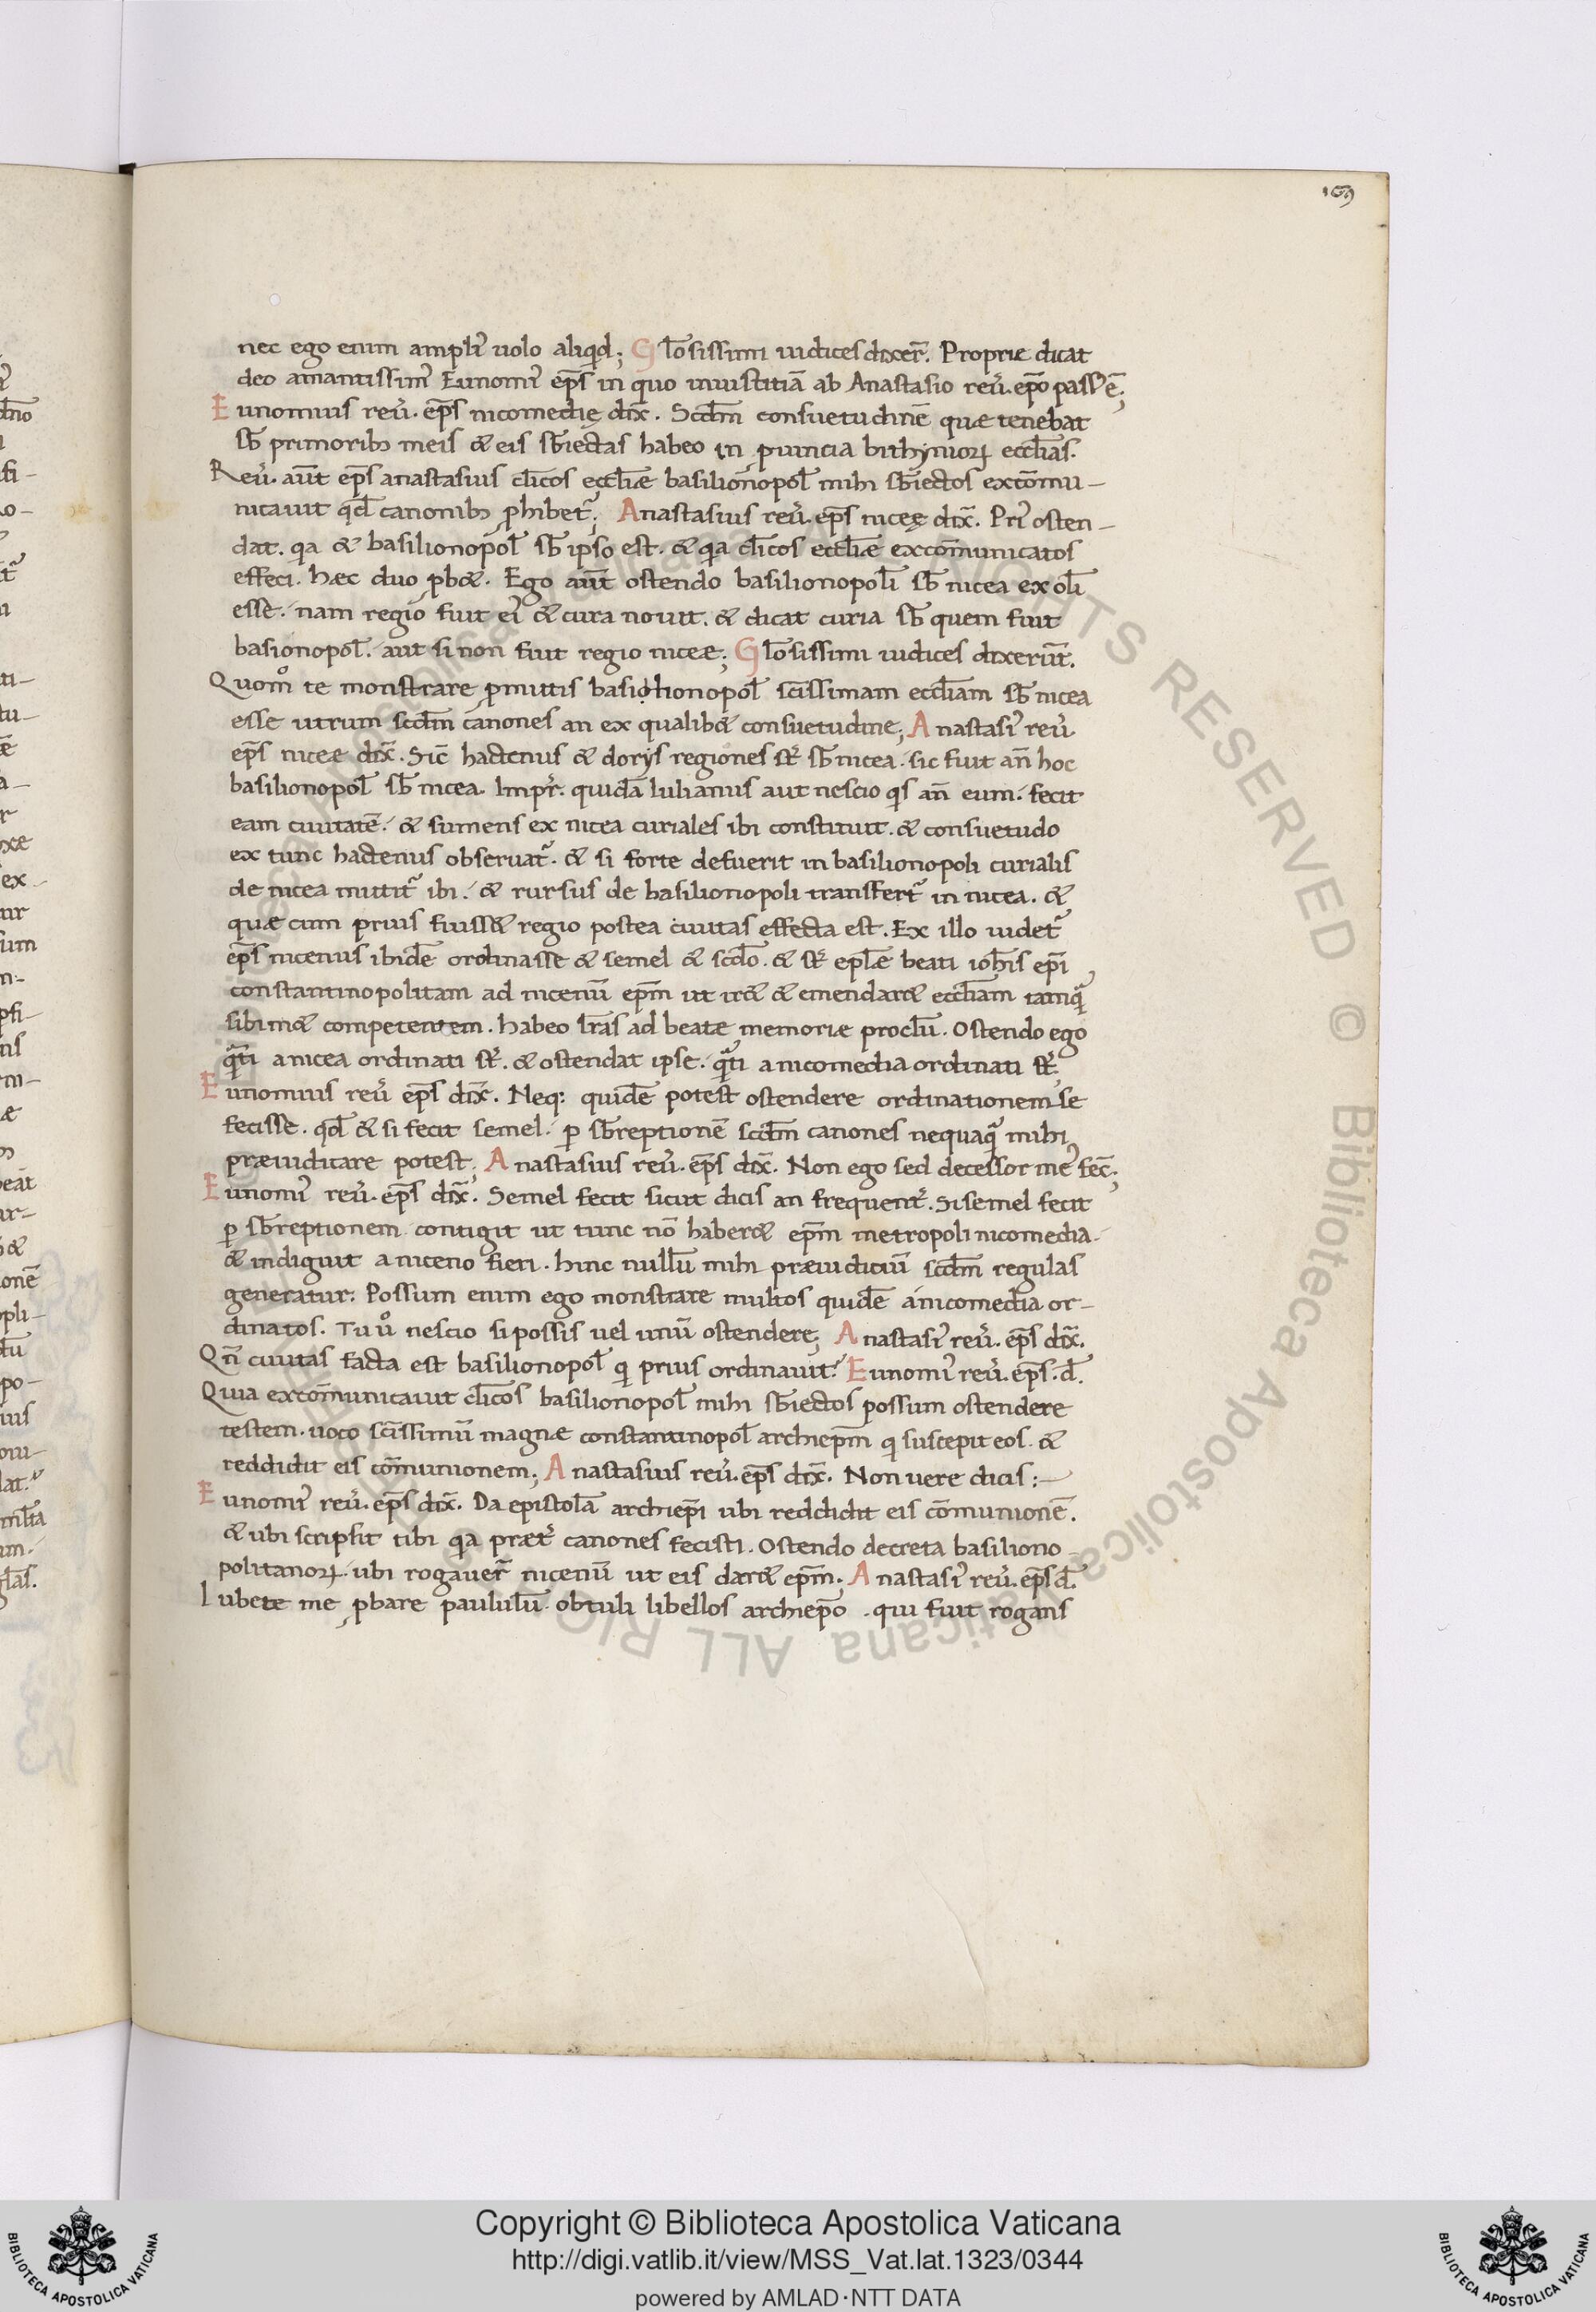 169
nec ego enim ampli᾽ uolo aliqd; Glosissimi iudices dixer̄. Proprie dicat
deo amantissim᾽ Eunomi᾽ ep̄s in quo iniustitiā ab Anastasio reu᾽. ep̄o pass᾽ ē;
Eunomius reu᾽. ep̄s nicomedię dix̄. Scd̄m consuetudinē quæ tenebat
sb̄ primorib; meis & eis sb̄iectas habeo in puincia bithynioꝝ eccl̄ias.
Reu᾽. aūt ep̄s anastasius cl̄icos eccl̄iæ basilionopol̄ mihi sb̄iectos excōmu-
nicauit qd̄ canonib; phibet᾽; Anastasius reu᾽. ep̄s niceę dix̄. Pri᾽ osten-
dat. qa & basilionopol̄ sb̄ ipso est. & qa cl̄icos eccl̄iæ excōmunicatos
effeci. hæc duo pb&. Ego aūt ostendo basilionopoli᾽ sb̄ nicea ex oli᾽
esse. nam regio fuit ei᾽ & cura nouit. & dicat curia sb̄ quem fuit
basionopol̄. aut si non fuit regio niceæ; Glosissimi iudices dixerūt.
Quom̊ te monstrare pmittis basiolionopol̄ sc̄issimam eccl̄iam sb̄ nicea
esse utrum scd̄m canones an ex qualib& consuetudine; Anastasi᾽ reu᾽
ep̄s niceæ dix̄. Sic̄ hactenus & dorys regiones st᾽ sb̄ nicea. sic fuit an̄ hoc
basilionopol̄ sb̄ nicea. Impr̄. quidā Iulianus aut nescio qs an̄ eum. fecit
eam ciuitatē. & sumens ex nicea curiales ibi constituit. & consuetudo
ex tunc hactenus obseruat᾽. & si forte defuerit in basilionopoli curialis
de nicea mittit᾽ ibi. & rursus de basilionopoli transfert᾽ in nicea. &
quæ cum prius fuiss& regio postea ciuitas effecta est. Ex illo uidet᾽
ep̄s nicenus ibidē ordinasse & semel & scd̄o. & st᾽ epl̄æ beati ioh̄is ep̄i
constantinopolitani ad nicenū ep̄m ut ir& & emendar& eccl̄iam tamq᾽
sibim& competentem. habeo lr̄as ad beatæ memoriæ proclū. Ostendo ego
q᾽ti a nicea ordinati st᾽. & ostendat ipse. q᾽ti a nicomedia ordinati st᾽;
Eunomius reu᾽ ep̄s dix̄. Neq; quidē potest ostendere ordinationem se
fecisse. qd̄ & si fecit semel. p sb̄reptionē scd̄m canones nequaq᾽ mihi
præiudicare potest; Anastasius reu᾽. ep̄s dix̄. Non ego sed decessor me᾽ fec̄;
Eunomi᾽ reu᾽. ep̄s dix̄. Semel fecit sicut dicis an frequent᾽. Si semel fecit
p sb̄reptionem contigit ut tunc nō haber& ep̄m metropoli nicomedia.
& indiguit a niceno fieri. hinc nullū mihi præiudiciū scd̄m regulas
generatur. Possum enim ego monstrare multos quidē a nicomedia or-
dinatos. Tu ů nescio si possis uel unū ostendere; Anastasi᾽ reu᾽. ep̄s dix̄.
Qn̄ ciuitas facta est basilionopol̄ qi prius ordinauit? Eunomi᾽ reu᾽. ep̄s. d̄.
Quia excōmunicauit cl̄icos basilionopol̄ mihi sb̄iectos possum ostendere
testem. uoco sc̄issimū magnæ constantinopol̄ archiep̄m qi suscepit eos. &
reddidit eis cōmunionem; Anastasius reu᾽. ep̄s dix̄. Non uere dicis:-
Eunomi᾽ reu᾽. ep̄s dix̄. Da epistolā archiep̄i ubi reddidit eis cōmunionē.
& ubi scripsit tibi qa præt᾽ canones fecisti. Ostendo decreta basiliono-
politanoꝝ. ubi rogauer̄ nicenū ut eis dar& ep̄m. Anastasi᾽ reu᾽. ep̄s d̄.
Iubete me pbare paululū. obtuli libellos archiep̄o. qui fuit rogans
Copyright © Biblioteca Apostolica Vaticana
http://digi.vatlib.it/view/MSS_Vat.lat.1323/0344
powered by AMLAD·NTT DATA